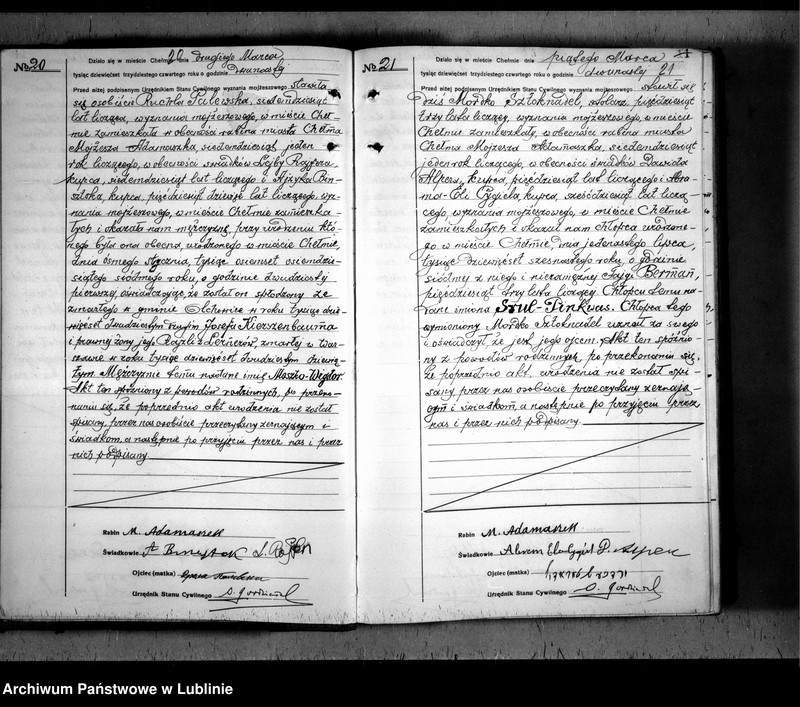 № 20
Działo się w mieście Chełmie drugiego Marca
tysiąc dziewięćset trzydziestego czwartego roku o godzinie dwunastej
Przed niżej podpisanym Urzędnikiem Stanu Cywilnego wyznania mojżeszowego stawiła
się osobiście Ruchla siedemdziesiąt
lat licząca, wyznania mojżeszowego, w mieście Cheł-
mie zamieszkała w obecności rabina miasta Chełma
Mojżesza Adamaszka, siedemdziesiąt jeden
rok liczącego, w obecności świadków Lejby
kupca, siedemdziesiąt lat liczącego i
kupca, pięćdziesiąt dziewięć lat liczącego, wyz-
nania mojżeszowego, w mieście Chełmie zamieszka-
łych i okazała nam mężczyznę, przy urodzeniu któ-
rego była ona obecna, urodzonego w mieście Chełmie,
dnia ósmego stycznia, tysiąc osiemset osiemdzie-
siątego siódmego roku, o godzinie dwudziestej
pierwszej, oświadczając, że został on spłodzony ze
zmarłego w gminie Olchowiec w roku tysiąc dzie-
więćset dwudziestym Josefa Kierszenbauma
i prawnej żony jego Rajzli z Lernerów, zmarłej w War-
szawie w roku tysiąc dziewięćset dwudziestym dziewią-
tym. Mężczyźnie temu nadane imię Moszko-Wigdor.
Akt ten spóźniony z powodów rodzinnych, po przeko-
naniu się, że poprzednio akt urodzenia nie został
spisany, przez nas osobiście przeczytany zeznającym i
świadkom, a następnie po przyjęciu przez nas i przez
nich podpisany
Rabin M. Adamaszek
Świadkowie
Ojciec (matka)
Urzędnik Stanu Cywilnego
№ 21
Działo się w mieście Chełmie piątego Marca
tysiąc dziewięćset trzydziestego czwartego roku o godzinie dwunastej 21
Przed niżej podpisanym Urzędnikiem Stanu Cywilnego wyznania mojżeszowego stawił się
Mordko Sztoknadel, stolarz, pięćdziesiąt
trzy lata liczący, wyznania mojżeszowego, w mieście
Chełmie zamieszkały, w obecności rabina miasta
Chełma Mojżesza Adamaszka, siedemdziesiąt
jeden rok liczącego, w obecności świadków Dawida
Alpera, kupca, pięćdziesiąt lat liczącego i Abra-
ma-Eli Cygiela kupca, sześćdziesiąt lat liczą-
cego, wyznania mojżeszowego, w mieście Chełmie
zamieszkałych i okazał nam chłopca urodzone-
go w mieście Chełmie dnia jedenastego lipca,
tysiąc dziewięćset szesnastego roku, o godzinie
siódmej z niego i niezamężnej Fajgi Berman,
pięćdziesiąt trzy lata liczącej Chłopcu temu na-
dane imiona Szul-Pinkwas. Chłopca tego
wymieniony Mordko Sztoknadel uznał za swego
i oświadczył, że jest jego ojcem. Akt ten spóźnio-
ny z powodów rodzinnych, po przekonaniu się,
że poprzednio akt urodzenia nie został spi-
sany przez nas osobiście przeczytany zeznają-
cym i świadkom, a następnie po przyjęciu przez
nas i przez nich podpisany.
Rabin M. Adamaszek
Świadkowie Abram Ela Cygiel D. Alper
Ojciec (matka)
Urzędnik Stanu Cywilnego
Archiwum Państwowe w Lublinie